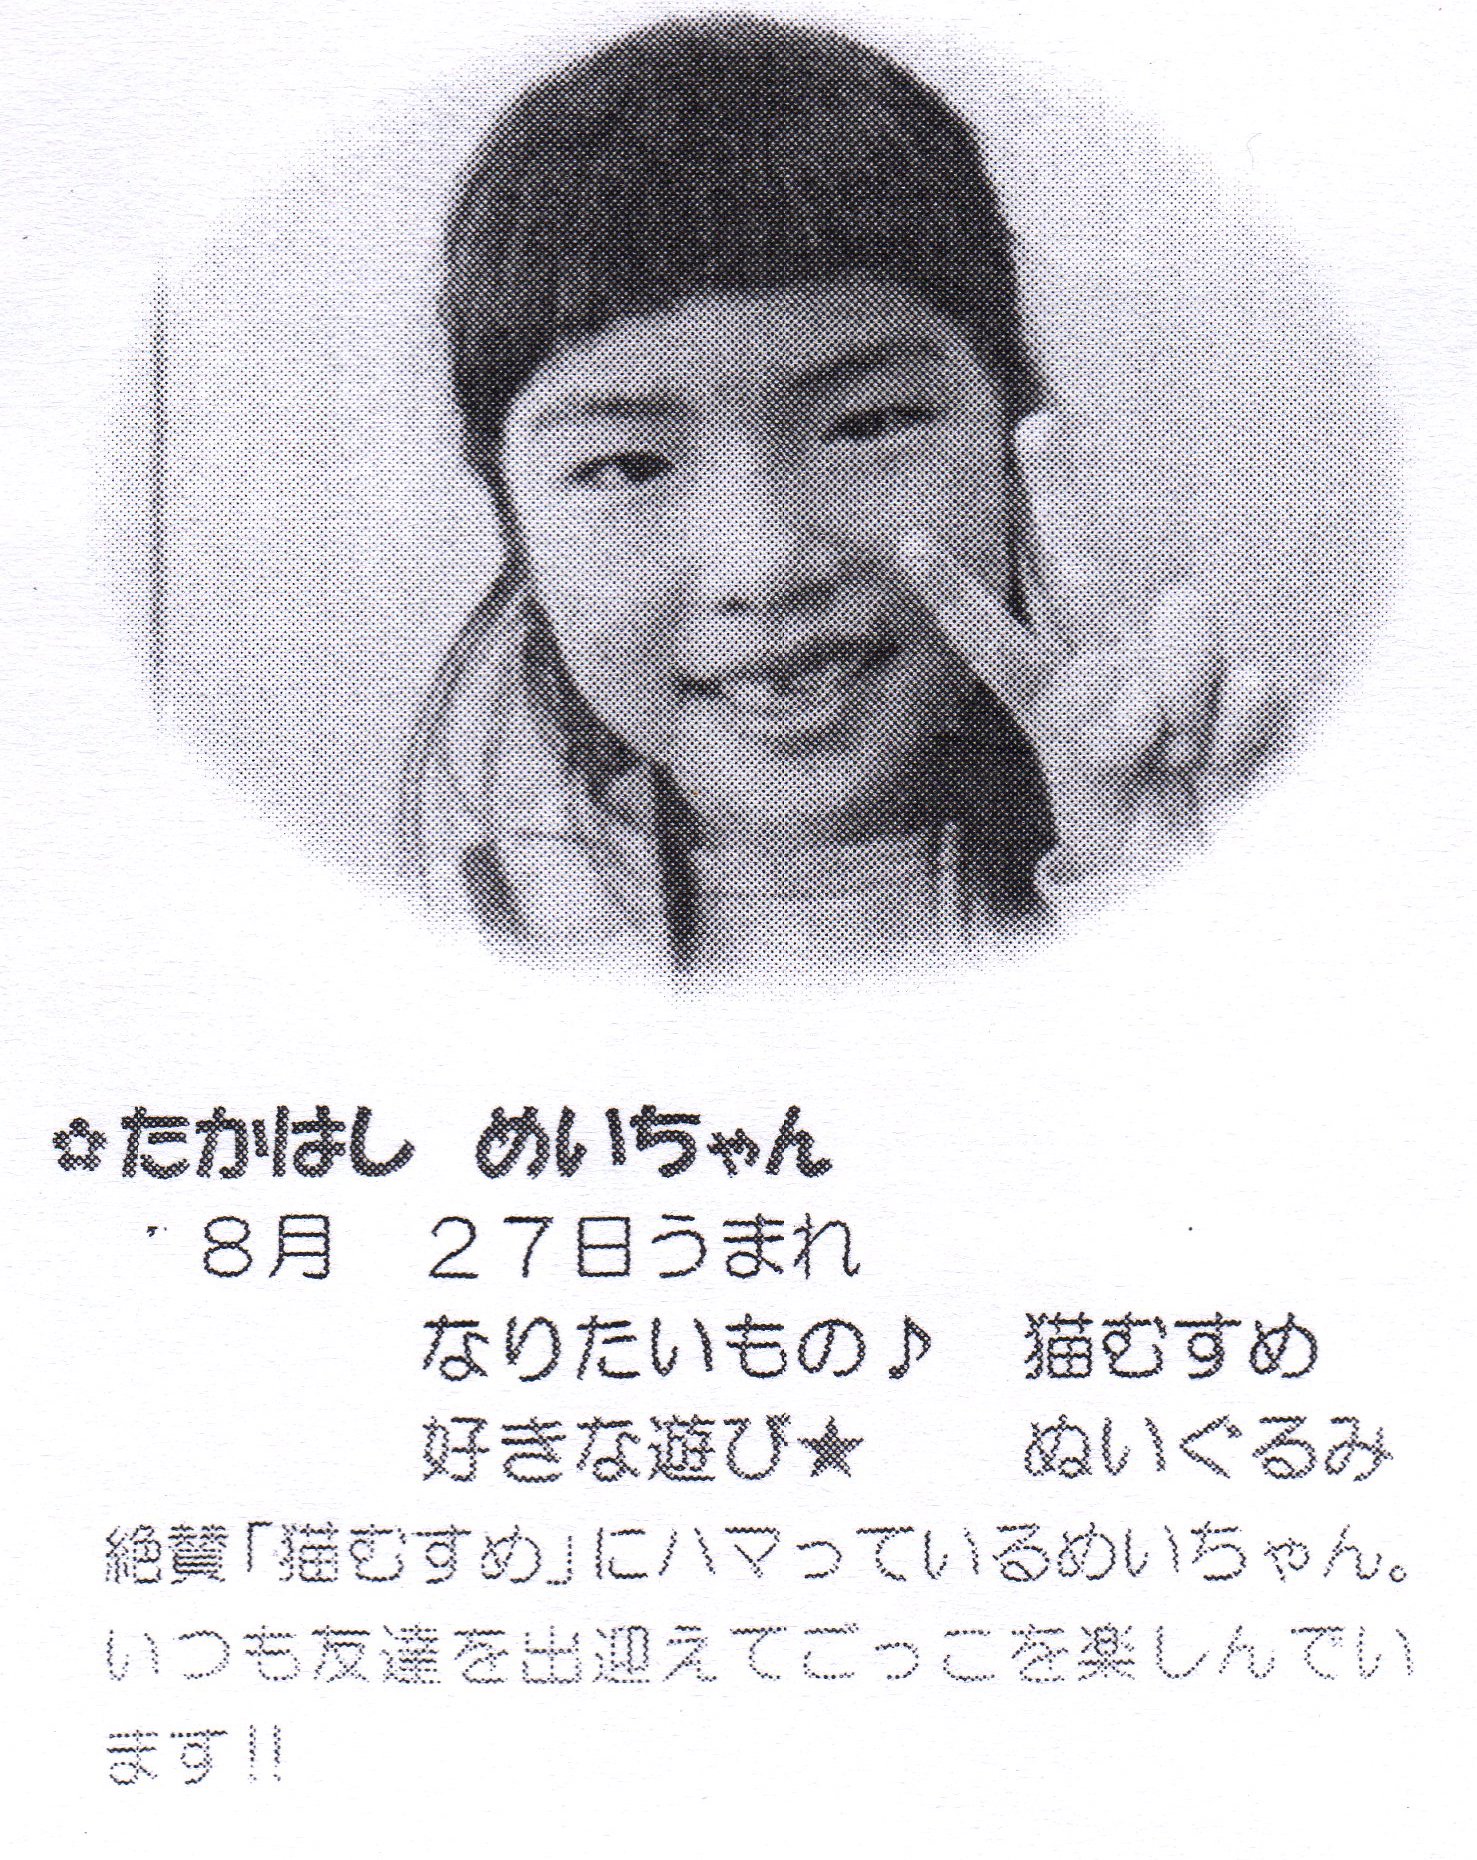 ✿たかはし　めいちゃん
8月　27日うまれ
なりたいもの♪　猫むすめ
好きな遊び★　ぬいぐるみ
絶賛「猫むすめ」にハマっているめいちゃん。
いつも友達を出迎えてごっこを楽しんでい
ます!!